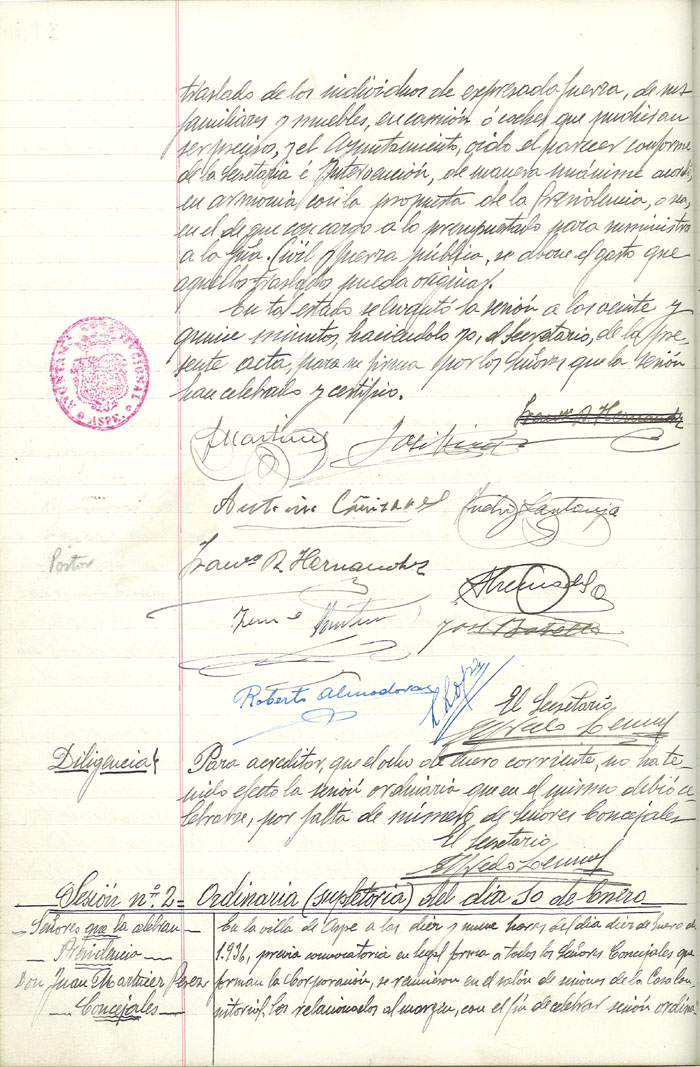 traslado de los individuos de expresada fuerza, de sus
familiares y muebles, en camión ó coches que pudieran
ser preciso, y el Ayuntamiento, oido el parecer conforme
de la Secretaria é Intervención, de manera unánime acordó,
en armonia con la propuesta de la Presidencia, o sea,
en el de que con cargo a lo presupuestado para suministro
a la Gdia. Civil y fuerza pública, se abone el gasto que
aquellos traslados pueda originar.
En tal estado se levantó la sesión a las veinte y
quince minutos, haciéndolo yo, el Secretario, de la pre-
sente acta, para su firma por los Señores que la sesión
han celebrado y certifico.
AYUNTAMIENTO ASPE
Franco R. Hernandez
JMartinez
Antonio Cañizares
Pedro Santonja
Franco R. Hernandez
Pastor
Almodovar
José Botella
Roberto Almodovar
L Lopez
El Secretario
Diligencia
Para acreditar, que el ocho de Enero corriente, no ha te-
nido efecto la sesión ordinaria que en el mismo debió ce
lebrarse, por falta de número de Señores Concejales
El Secretario
Sesión nº. 2 = Ordinaria (supletoria) del día 10 de Enero
Señores que la celebran
Presidencia
Don Juan Martinez Perez
Concejales
En la villa de Aspe a las diez y nueve horas del día diez de Enero de
1.936, previa convocatoria en legal forma a todos los Señores Concejales que
forman la Corporación, se reunieron en el salón de sesiones de la Casa Con
sistorial, los relacionados al margen, con el fin de celebrar sesión ordina